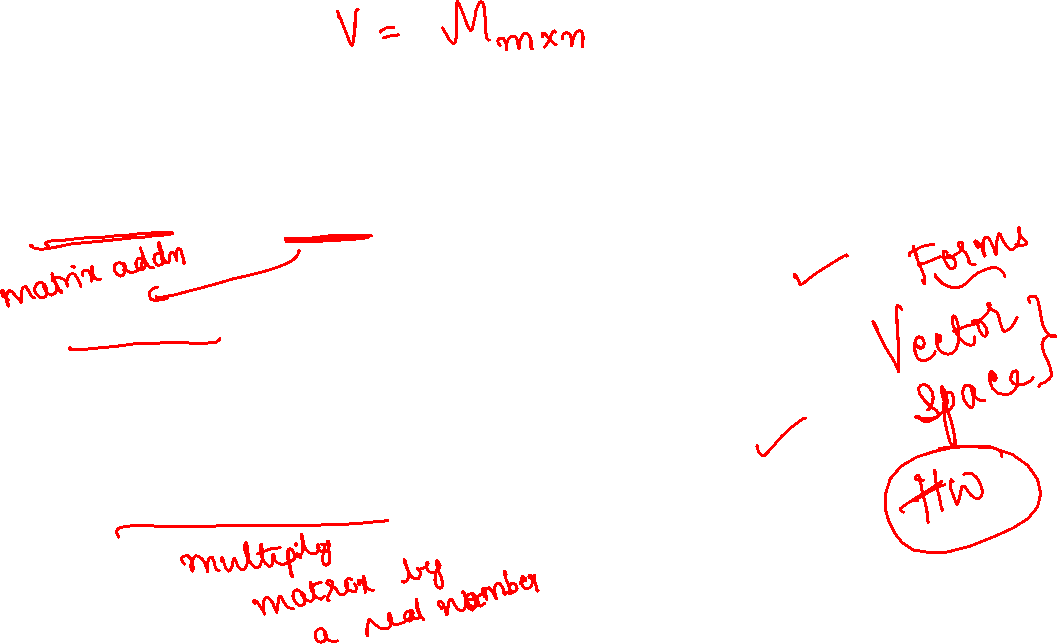 V = M m×n
matrix addn
Forms
Vector
Space
HW
multiply
matrix by
a real number